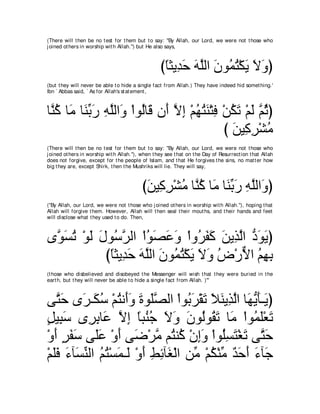 (There will then be no test for them but to say: "By Allah, our Lord, we were not those who
joined others in worship with Allah.") but He also says,
(وَلاَ يَكْتُمُونَ اللَّهَ حَدِيثاً)
(but they will never be able to hide a single fact from Allah.) They have indeed hid something.'
Ibn `Abbas said, `As for Allah's statement,
(ثُمَّ لَمْ تَكُنْ فِتْنَتُهُمْ إِلاَّ أَن قَالُواْ وَاللَّهِ رَبِّنَا مَا كُنَّا
مُشْرِكِينَ )
(There will then be no test for them but to say: "By Allah, our Lord, we were not those who
joined others in worship with Allah."), when they see that on the Day of Resurrection that Allah
does not forgive, except for the people of Islam, and that He forgives the sins, no matter how
big they are, except Shirk, then the Mushriks will lie. They will say,
(وَاللَّهِ رَبِّنَا مَا كُنَّا مُشْرِكِينَ)
("By Allah, our Lord, we were not those who joined others in worship with Allah."), hoping that
Allah will forgive them. However, Allah will then seal their mouths, and their hands and feet
will disclose what they used to do. Then,
(يَوَدُّ الَّذِينَ كَفَرُواْ وَعَصَوُاْ الرَّسُولَ لَوْ تُسَوَّى
بِهِمُ الاٌّرْضُ وَلاَ يَكْتُمُونَ اللَّهَ حَدِيثاً)
(those who disbelieved and disobeyed the Messenger will wish that they were buried in the
earth, but they will never be able to hide a single fact from Allah. )'"
(يَـأَيُّهَا الَّذِينَ ءَامَنُواْ لاَ تَقْرَبُواْ الصَّلَوةَ وَأَنتُمْ سُكَـرَى حَتَّى
تَعْلَمُواْ مَا تَقُولُونَ وَلاَ جُنُباً إِلاَّ عَابِرِى سَبِيلٍ
حَتَّى تَغْتَسِلُواْ وَإِنْ كُنتُم مَّرْضَى أَوْ عَلَى سَفَرٍ أَوْ
جَآءَ أَحَدٌ مِّنْكُمْ مِّن الْغَآئِطِ أَوْ لَـمَسْتُمُ النِّسَآءَ فَلَمْ